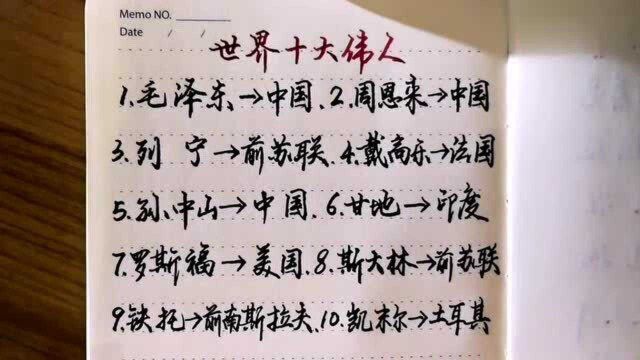 Memo NO.
Date / /
世界十大伟人
1.毛泽东→中国.2.周恩来→中国
3.列 宁→前苏联.4.戴高乐→法国
5.孙中山→中国.6.甘地→印度
7.罗斯福→美国.8.斯大林→前苏联
9.铁托→前南斯拉夫.10.凯末尔→土耳其